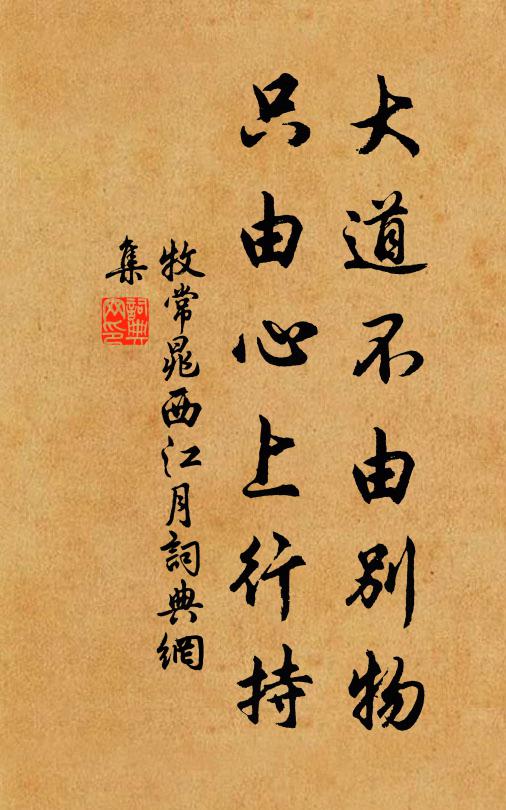 大道不由別物
只由心上行持
牧常晁西江月詞典網
集
詞典網印